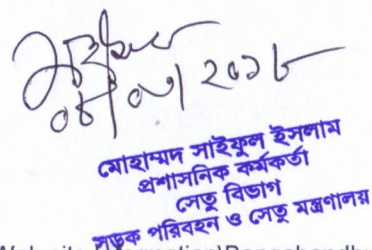 ০৮/০১/২০১৮
মোহাম্মদ সাইফুল ইসলাম
প্রশাসনিক কর্মকর্তা
সেতু বিভাগ
সড়ক পরিবহন ও সেতু মন্ত্রণালয়